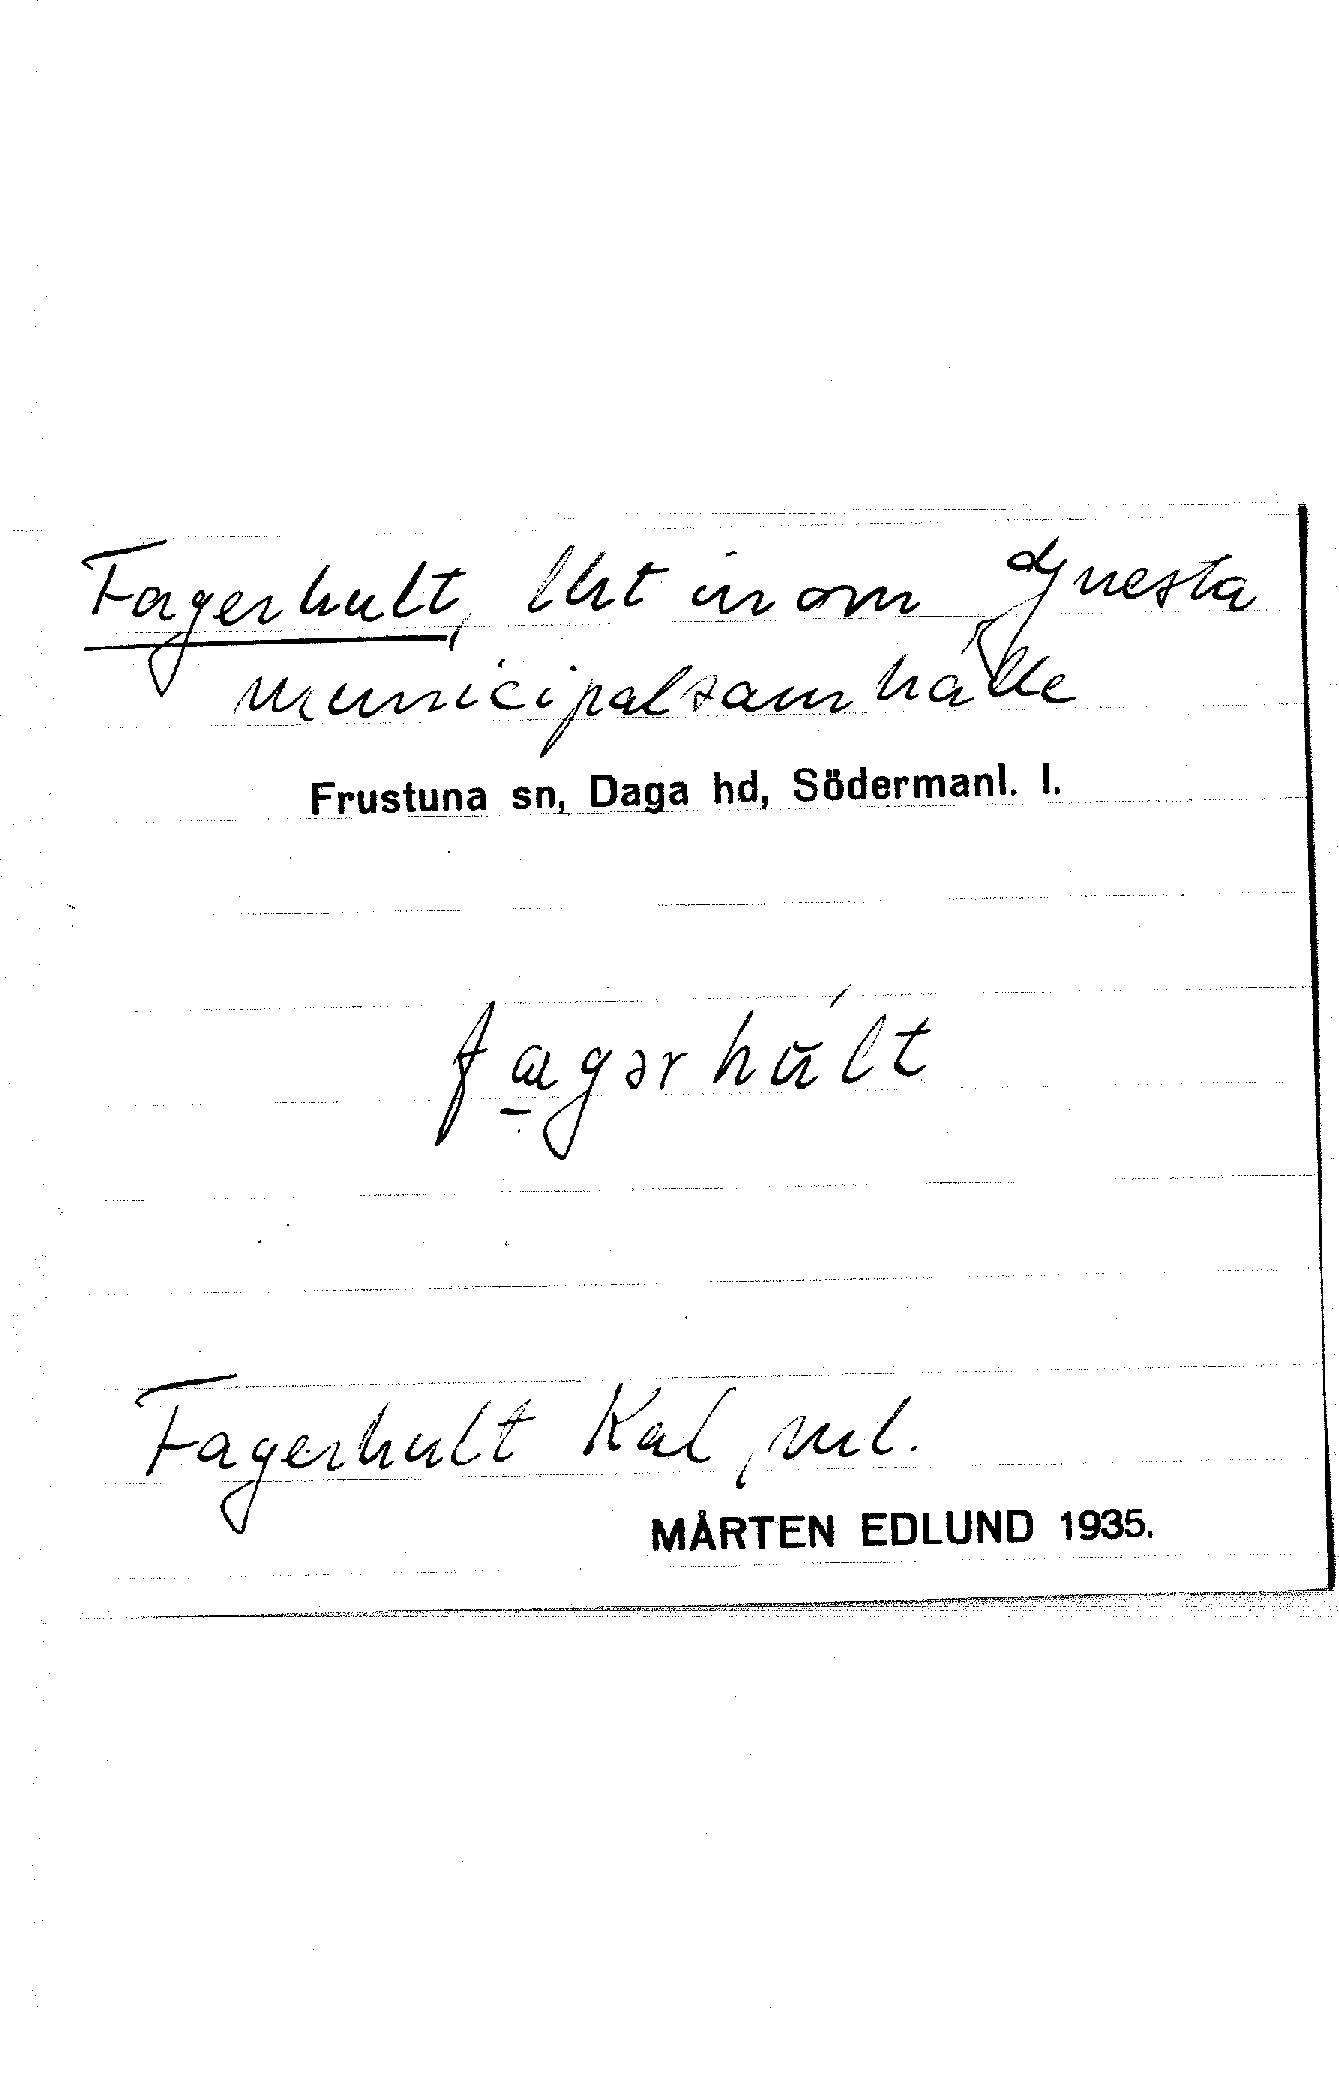 Fagerhult, lht inom Gnesta
municipalsamhälle
Frustuna sn, Daga hd, Södermanl. l.
fagərhúlt
Fagerhult Kal, ml.
MÅRTEN EDLUND 1935.